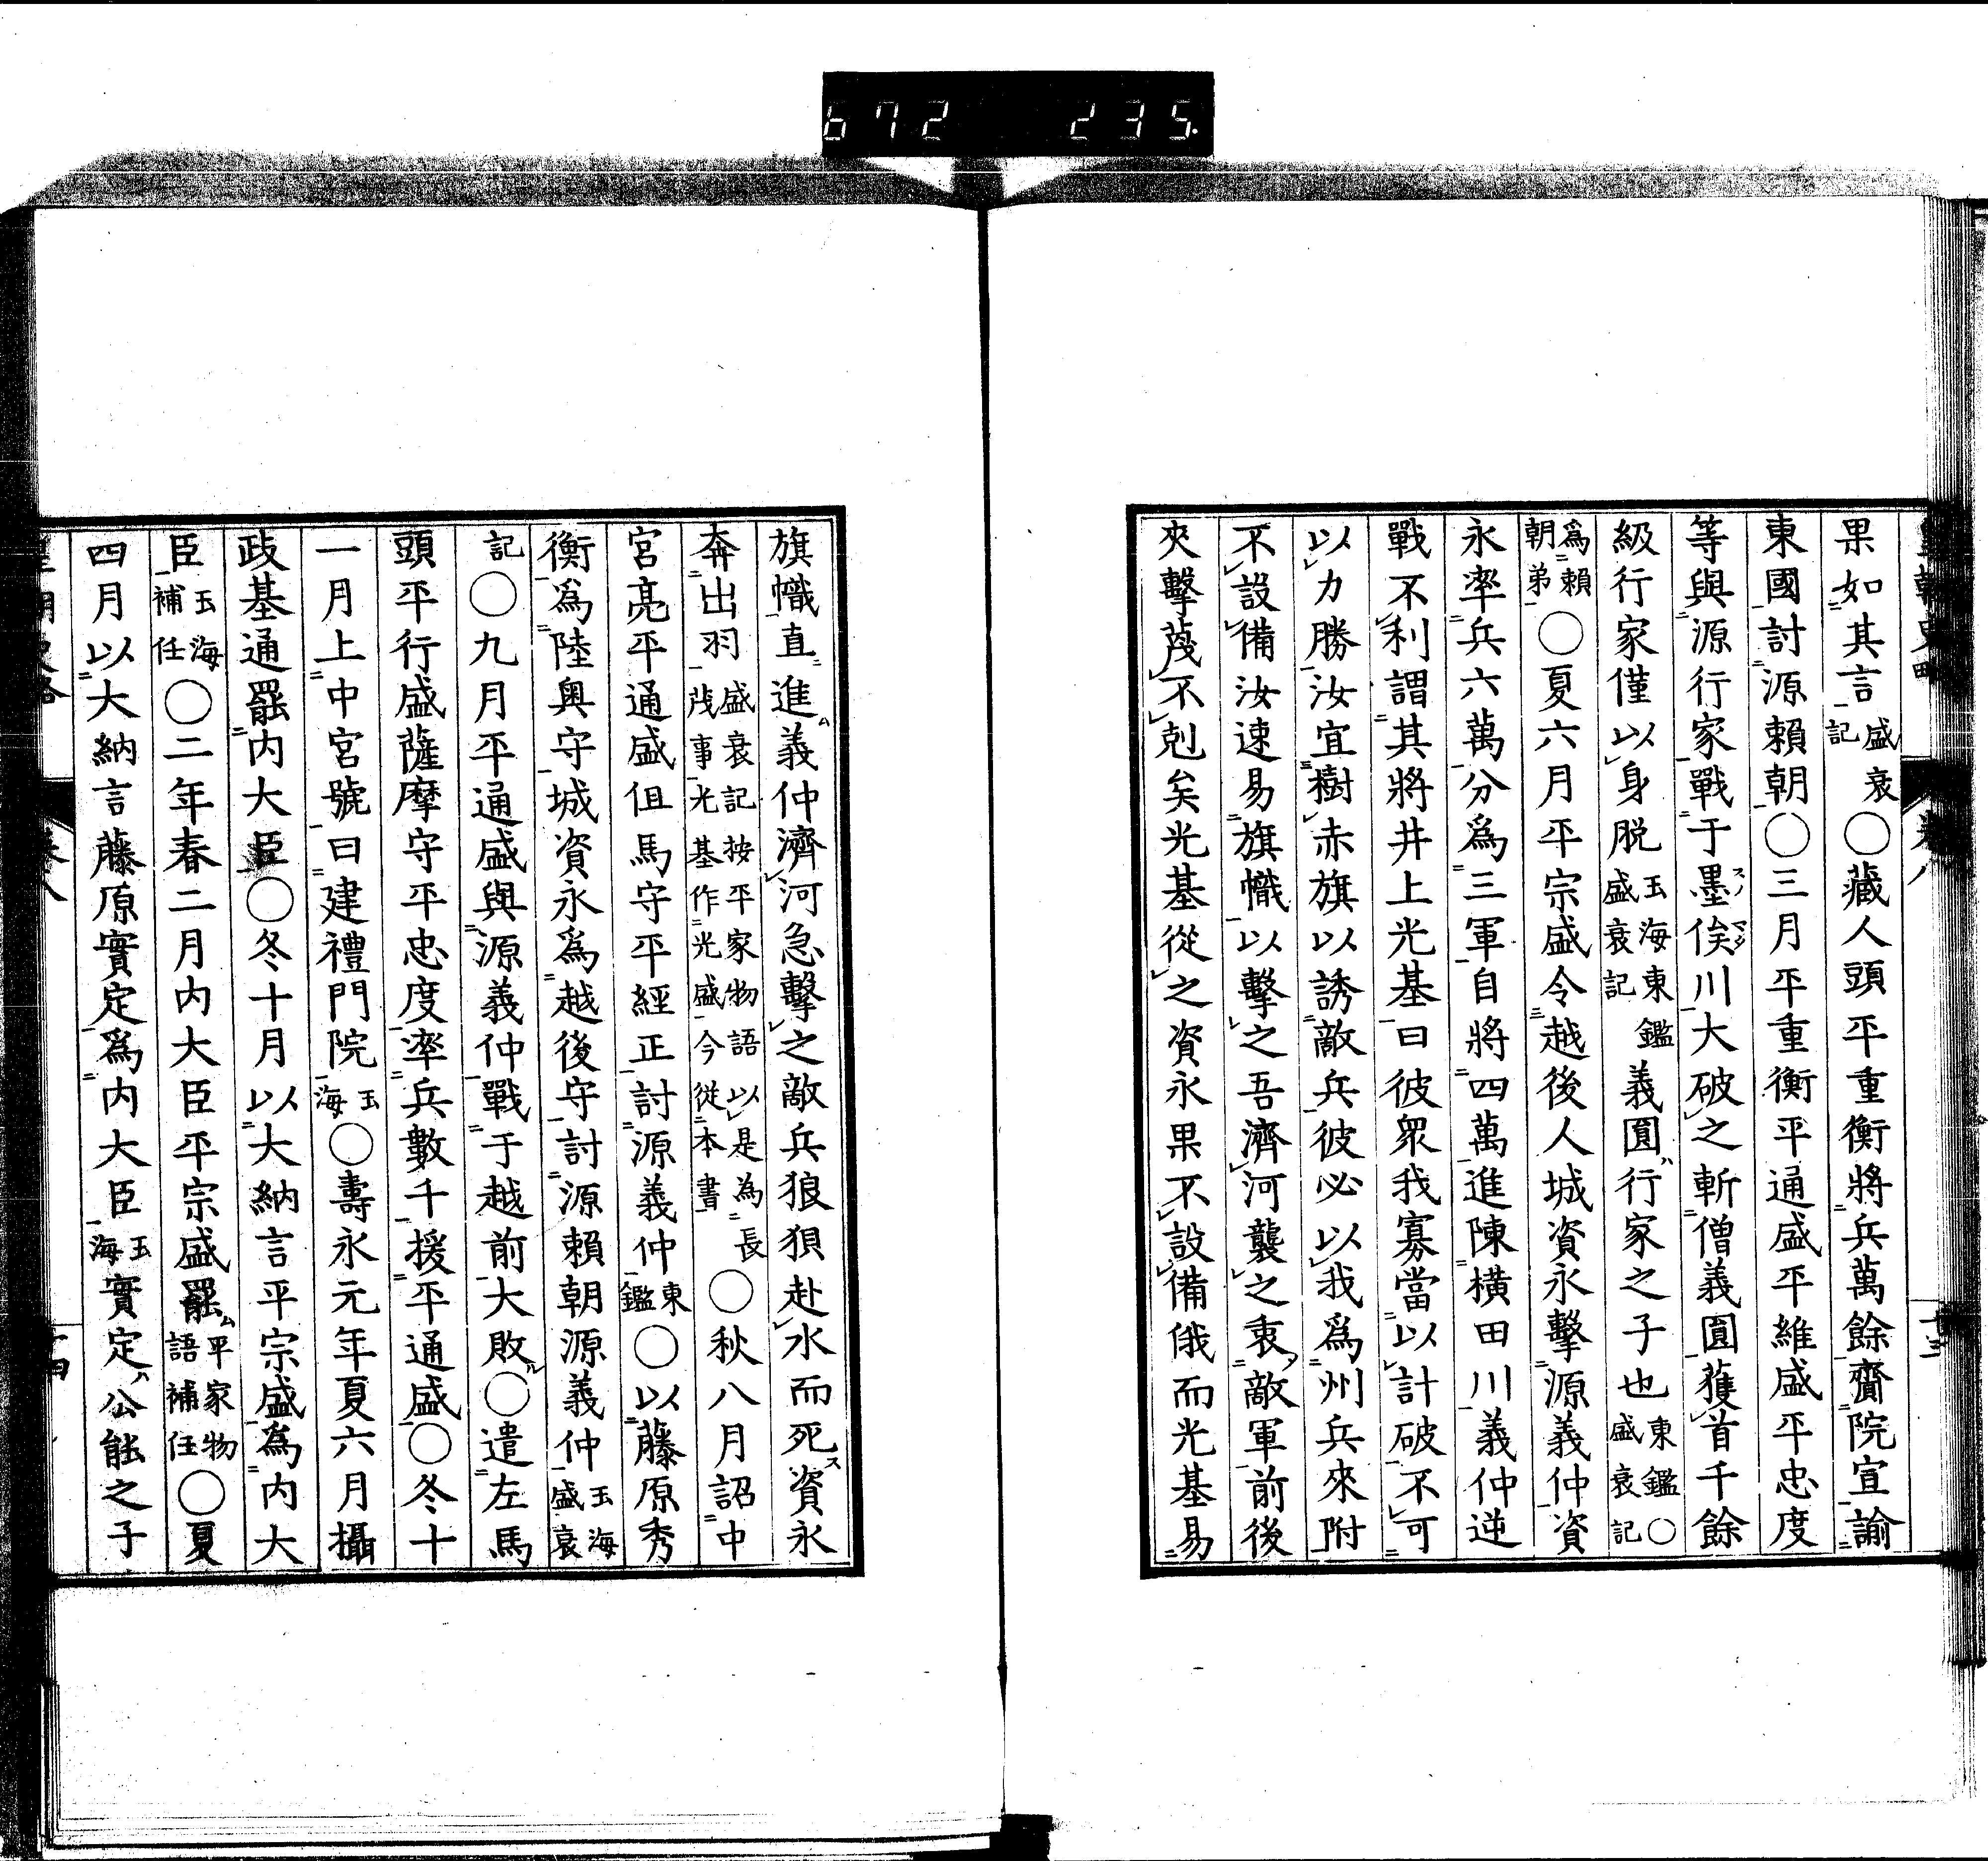 672 235.
果如其言盛衰記○藏人頭平重衡將兵萬餘齎院宣諭
東國討源賴朝○三月平重衡平通盛平維盛平忠度
等與源行家戰于墨俣川大破之斬僧義圓獲首千餘
級行家僅以身脱玉海東鑑盛衰記義圓行家之子也東鑑○盛衰記
爲賴朝弟○夏六月平宗盛令越後人城資永擊源義仲資
永率兵六萬分爲三軍自將四萬進陳横田川義仲逆
戰不利謂其將井上光基曰彼眾我寡當以計破不可
以力勝汝宜樹赤旗以誘敵兵彼必以我爲州兵來附
不設備汝速易旗幟以擊之吾濟河襲之衷敵軍前後
夾擊蔑不剋矣光基從之資永果不設備俄而光基易
旗幟直進義仲濟河急擊之敵兵狼狽赴水而死資永
奔出羽盛衰記按平家物語以是為長茂事光基作光盛今從本書○秋八月詔中
宮亮平通盛但馬守平經正討源義仲東鑑○以藤原秀
衡爲陸奥守城資永爲越後守討源賴朝源義仲玉海盛衰
記○九月平通盛與源義仲戰于越前大敗○遣左馬
頭平行盛薩摩守平忠度率兵數千援平通盛○冬十
一月上中宮號曰建禮門院玉海○壽永元年夏六月攝
政基通罷内大臣○冬十月以大納言平宗盛爲内大
臣玉海補任○二年春二月内大臣平宗盛罷平家物語補任○夏
四月以大納言藤原實定爲内大臣玉海實定公能之子